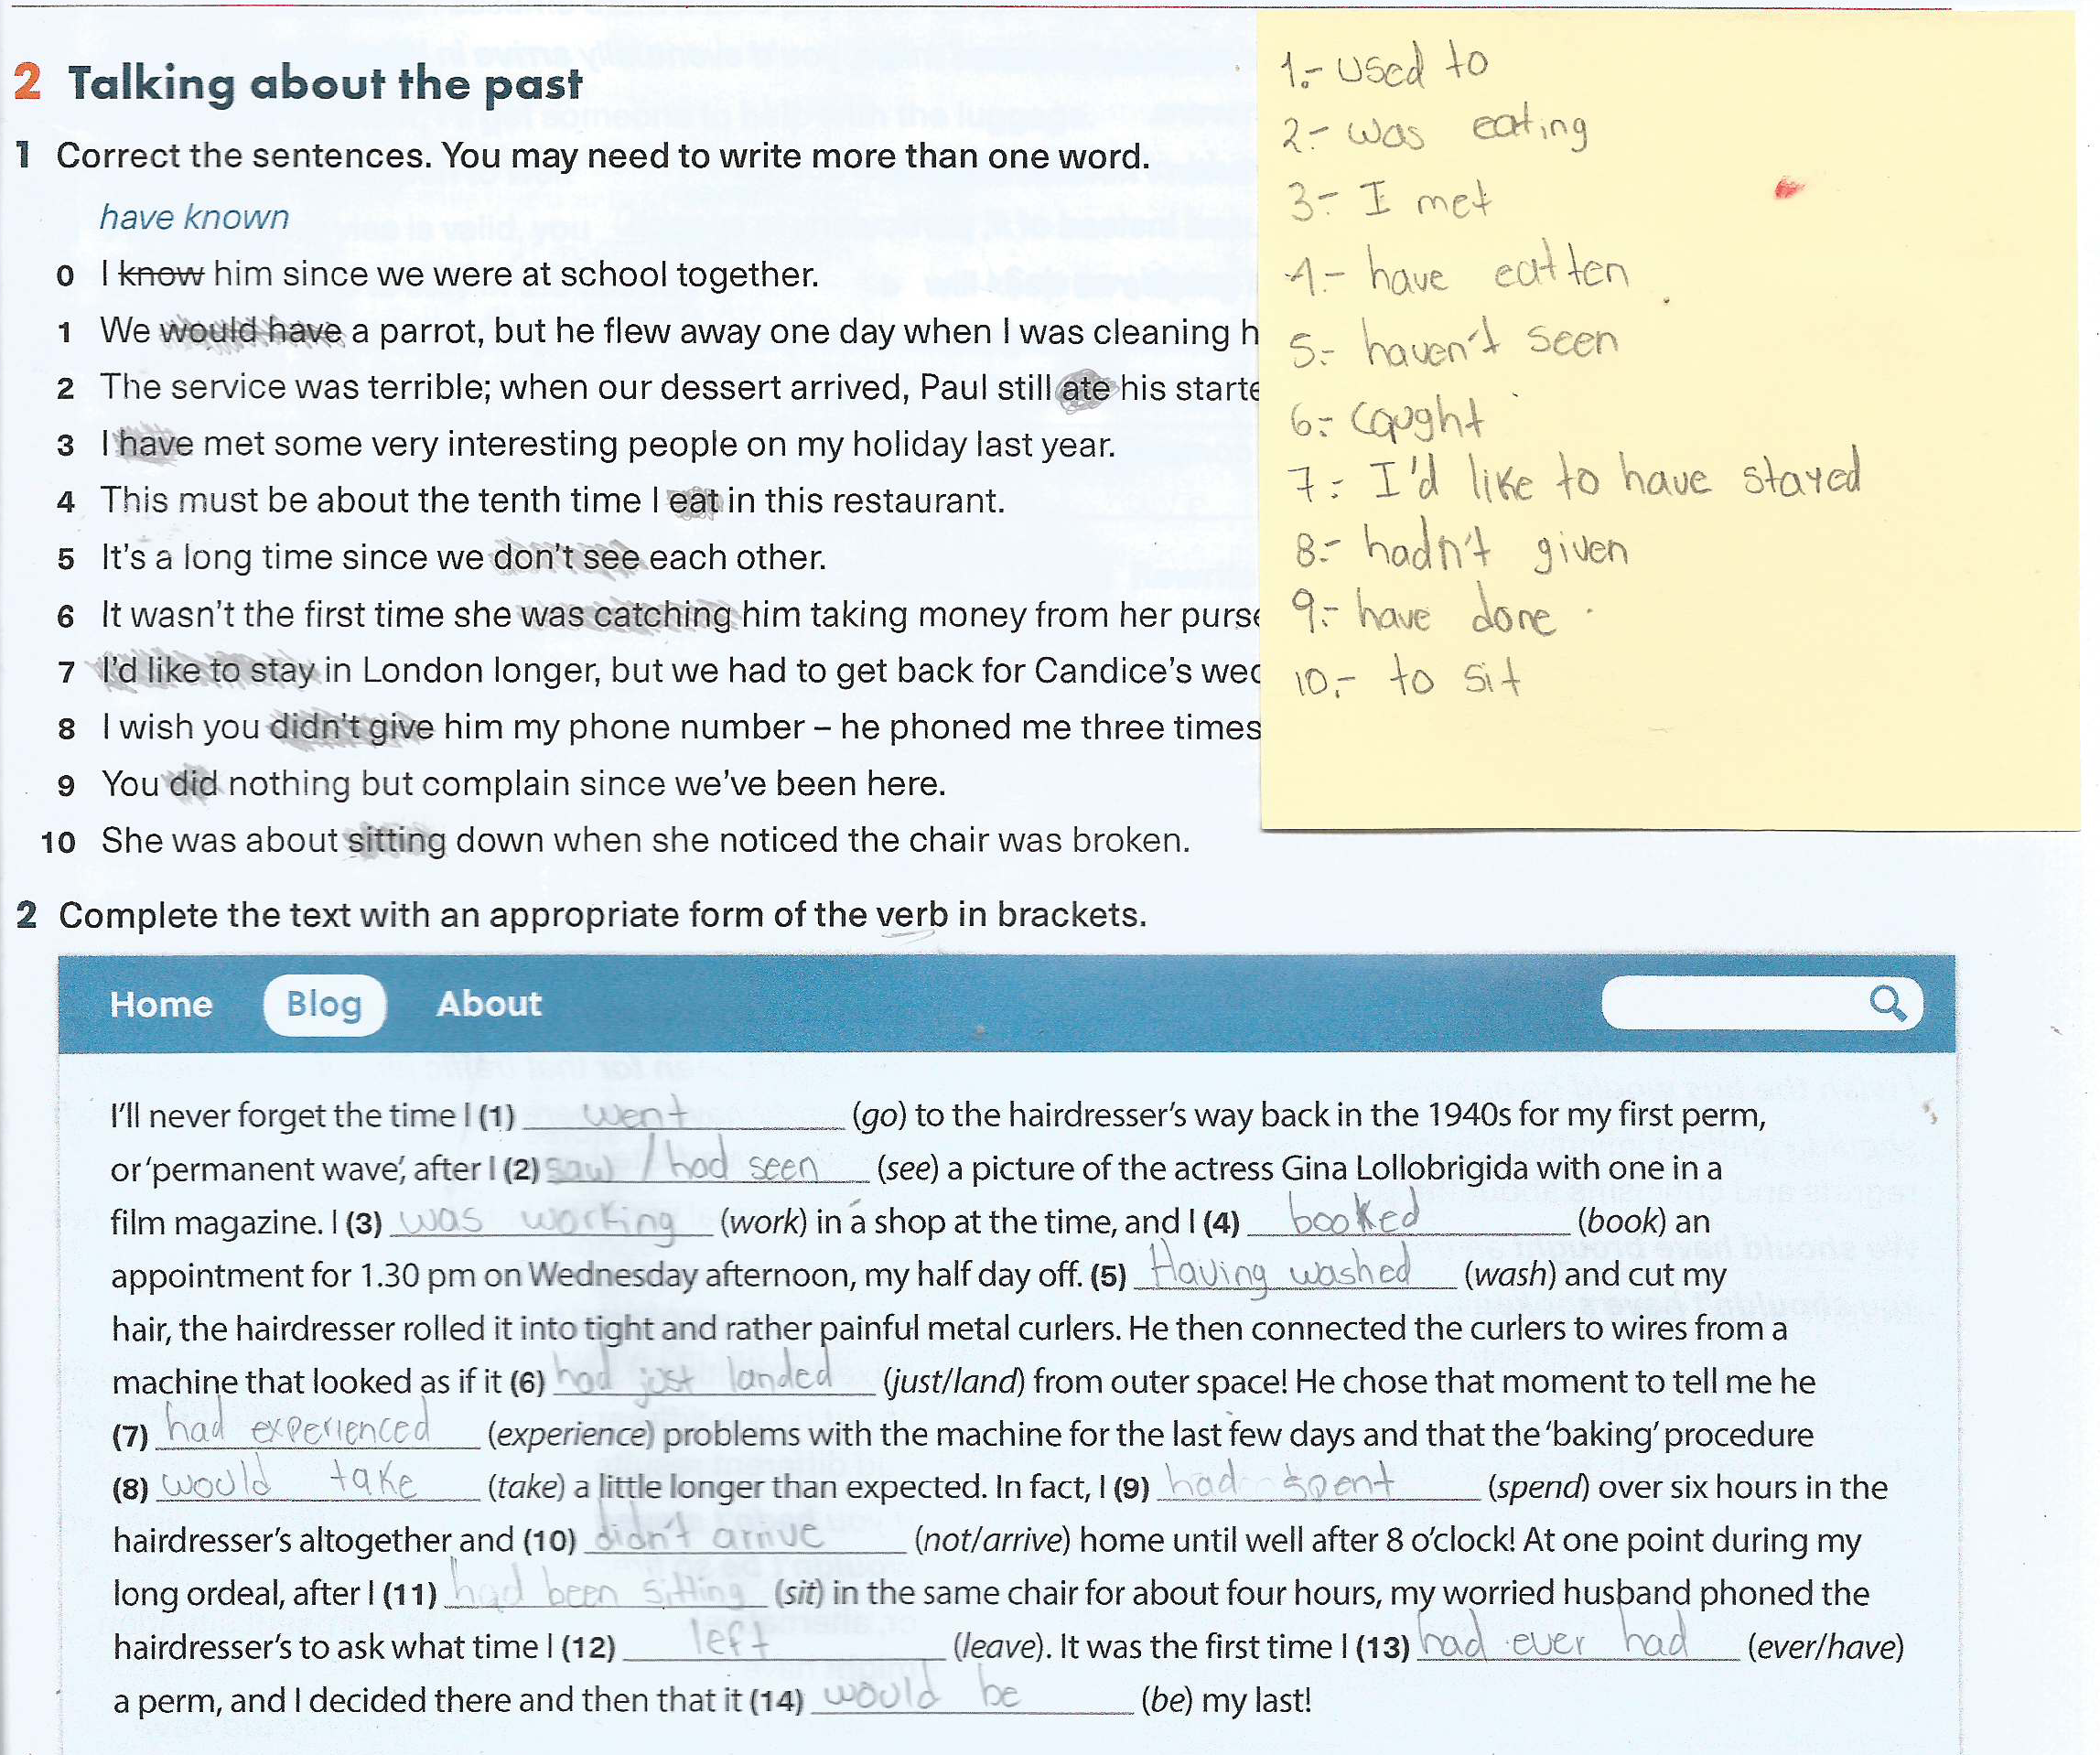 2 Talking about the past
1 Correct the sentences. You may need to write more than one word.
have known
0 I know him since we were at school together.
1 We would have a parrot, but he flew away one day when I was cleaning h
2 The service was terrible; when our dessert arrived, Paul still ate his starte
3 I have met some very interesting people on my holiday last year.
4 This must be about the tenth time I eat in this restaurant.
5 It's a long time since we don't see each other.
6 It wasn't the first time she was catching him taking money from her purse
7 I'd like to stay in London longer, but we had to get back for Candice's wed
8 I wish you didn't give him my phone number – he phoned me three times
9 You did nothing but complain since we've been here.
10 She was about sitting down when she noticed the chair was broken.
1.- used to
2.- was eating
3.- I met
4.- have eatten
5.- haven't seen
6.- caught
7.- I'd like to have stayed
8.- hadn't given
9.- have done
10.- to sit
2 Complete the text with an appropriate form of the verb in brackets.
Home Blog About
I'll never forget the time I (1) went (go) to the hairdresser's way back in the 1940s for my first perm,
or 'permanent wave', after I (2) saw / had seen (see) a picture of the actress Gina Lollobrigida with one in a
film magazine. I (3) was working (work) in a shop at the time, and I (4) booked (book) an
appointment for 1.30 pm on Wednesday afternoon, my half day off. (5) Having washed (wash) and cut my
hair, the hairdresser rolled it into tight and rather painful metal curlers. He then connected the curlers to wires from a
machine that looked as if it (6) had just landed (just/land) from outer space! He chose that moment to tell me he
(7) had experienced (experience) problems with the machine for the last few days and that the 'baking' procedure
(8) would take (take) a little longer than expected. In fact, I (9) had spent (spend) over six hours in the
hairdresser's altogether and (10) didn't arrive (not/arrive) home until well after 8 o'clock! At one point during my
long ordeal, after I (11) had been sitting (sit) in the same chair for about four hours, my worried husband phoned the
hairdresser's to ask what time I (12) left (leave). It was the first time I (13) had ever had (ever/have)
a perm, and I decided there and then that it (14) would be (be) my last!